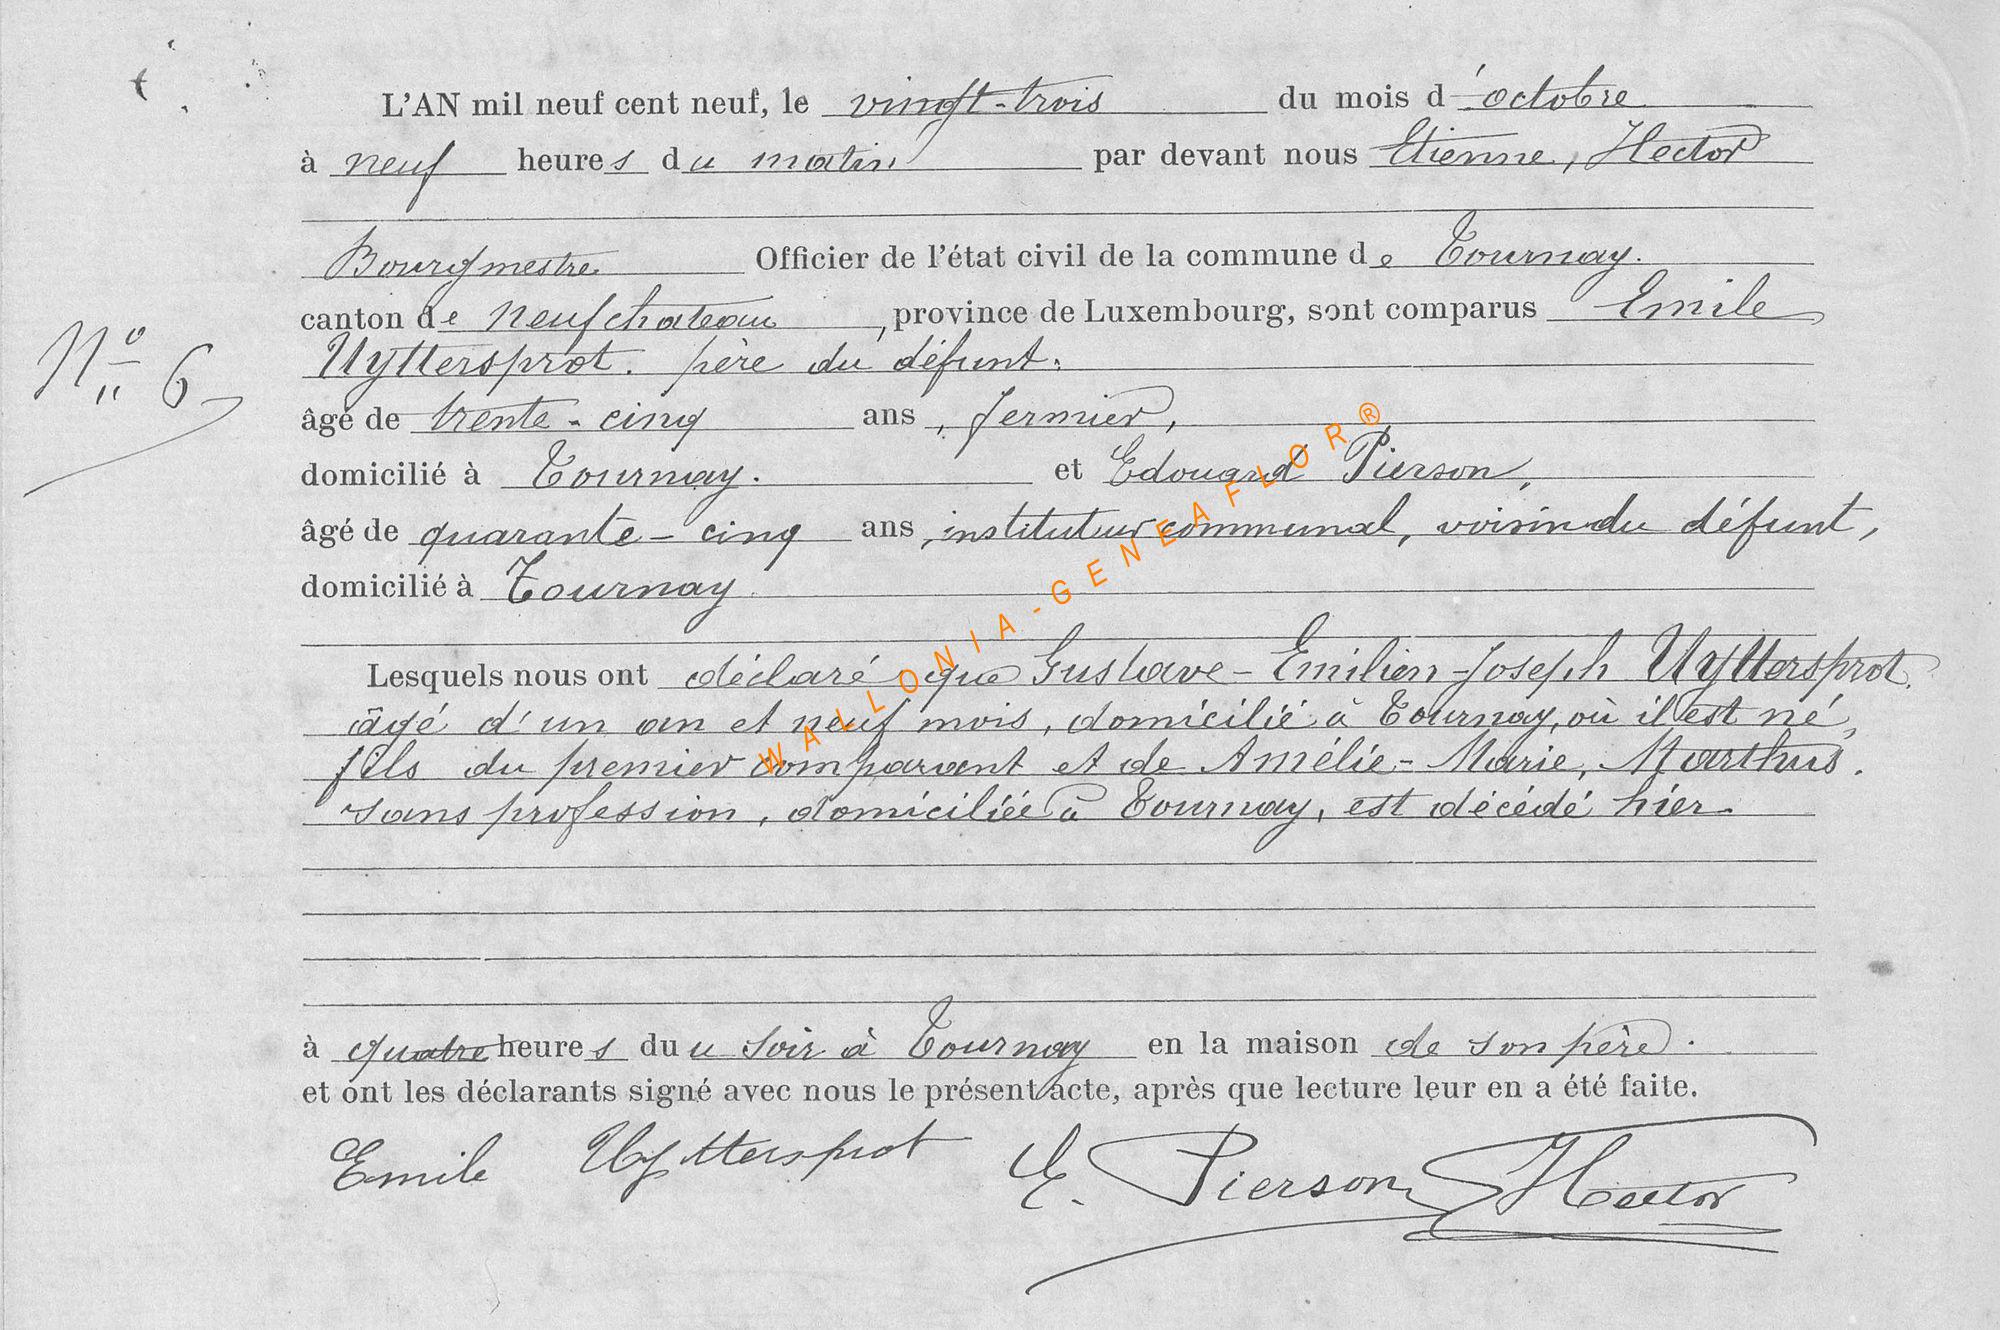 L'AN mil neuf cent neuf, le vingt-trois du mois d'octobre
à neuf heures du matin par devant nous Etienne, Hector
Bourgmestre Officier de l'état civil de la commune de Tournay.
canton de Neufchateau, province de Luxembourg, sont comparus Emile
Uyttersprot. père du défunt.
N° 6
âgé de trente-cinq ans, fermier,
domicilié à Tournay. et Edouard Pierson,
âgé de quarante-cinq ans, instituteur communal, voisin du défunt,
domicilié à Tournay
Lesquels nous ont déclaré que Gustave-Emilien-Joseph Uyttersprot.
âgé d'un an et neuf mois, domicilié à Tournay, où il est né,
fils du premier comparant et de Amélie-Marie, Marthus.
sans profession, domiciliée à Tournay, est décédé hier
à quatre heures du u soir à Tournay en la maison de son père.
et ont les déclarants signé avec nous le présent acte, après que lecture leur en a été faite.
Emile Uyttersprot E. Pierson Hector
WALLONIA-GENEAFLOR®